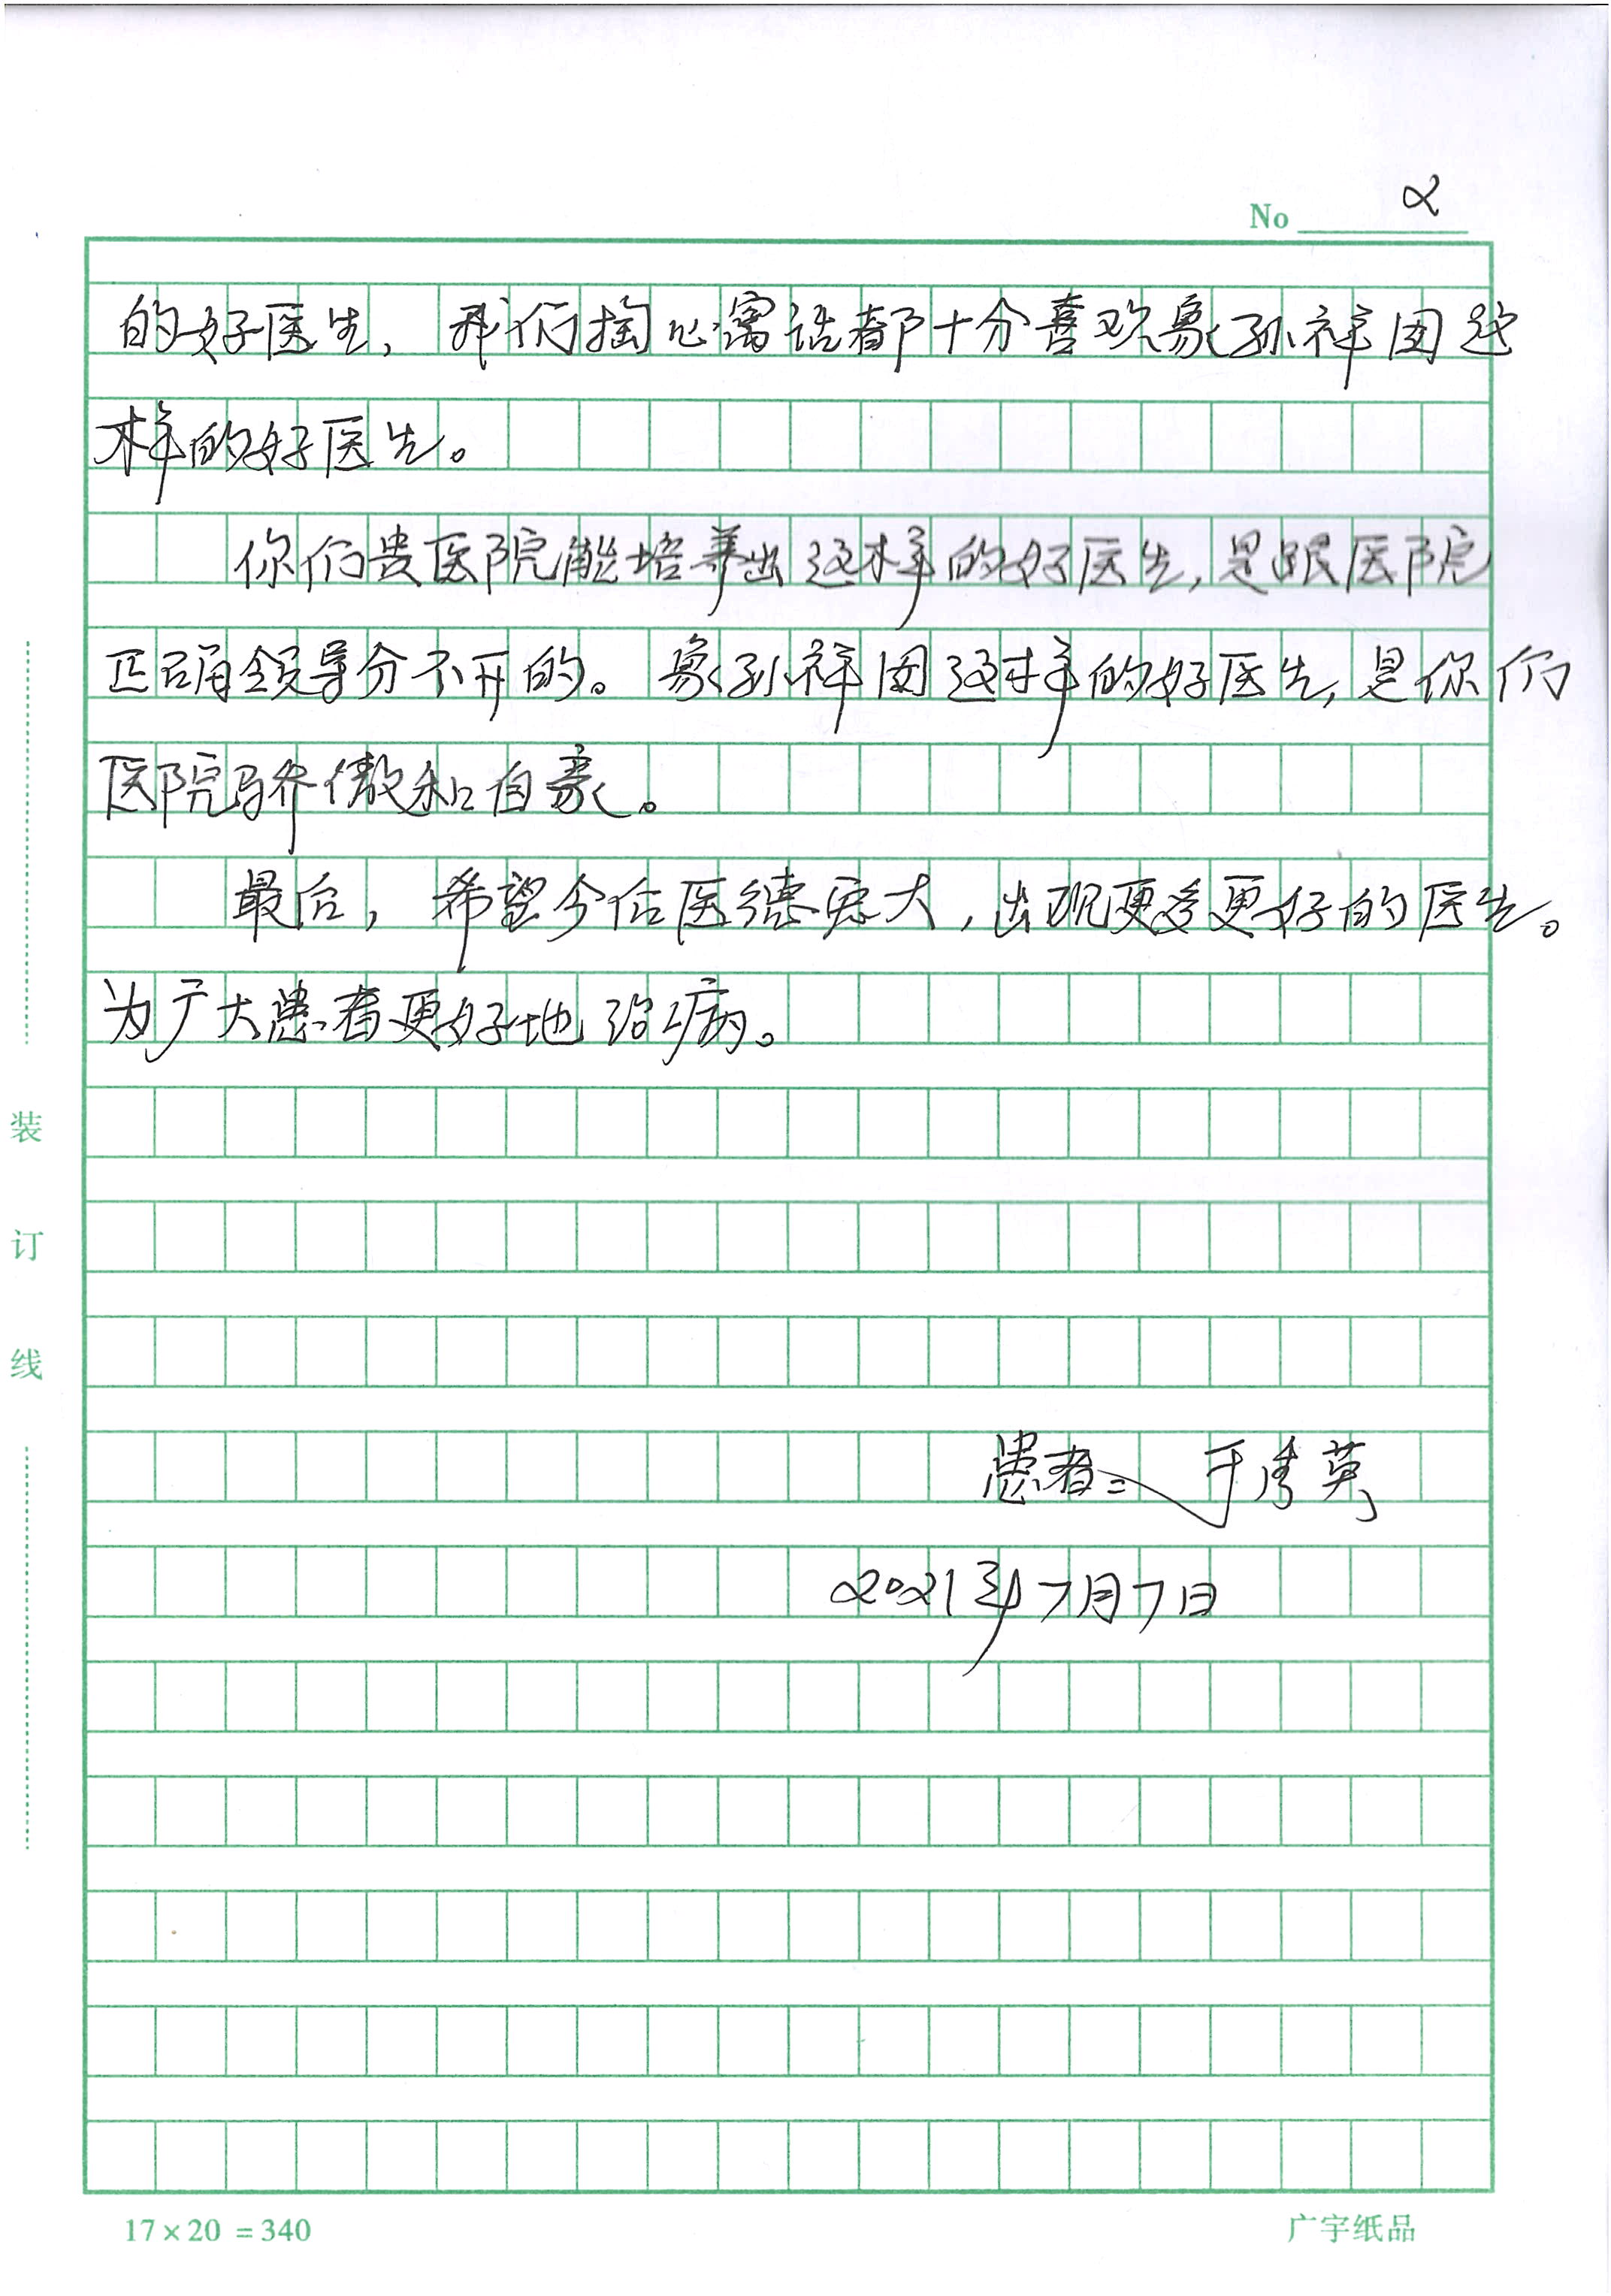 No 2
的好医生，我们掏心窝话都十分喜欢象孙祥国这
样的好医生。
你们贵医院能培养出这样的好医生，是跟医院
正确领导分不开的。象孙祥国这样的好医生，是你们
医院骄傲和自豪。
最后，希望今后医德宏大，出现更多更好的医生。
为广大患者更好地治病。
患者：于秀英
2021年7月7日
装
订
线
17×20=340
广宇纸品